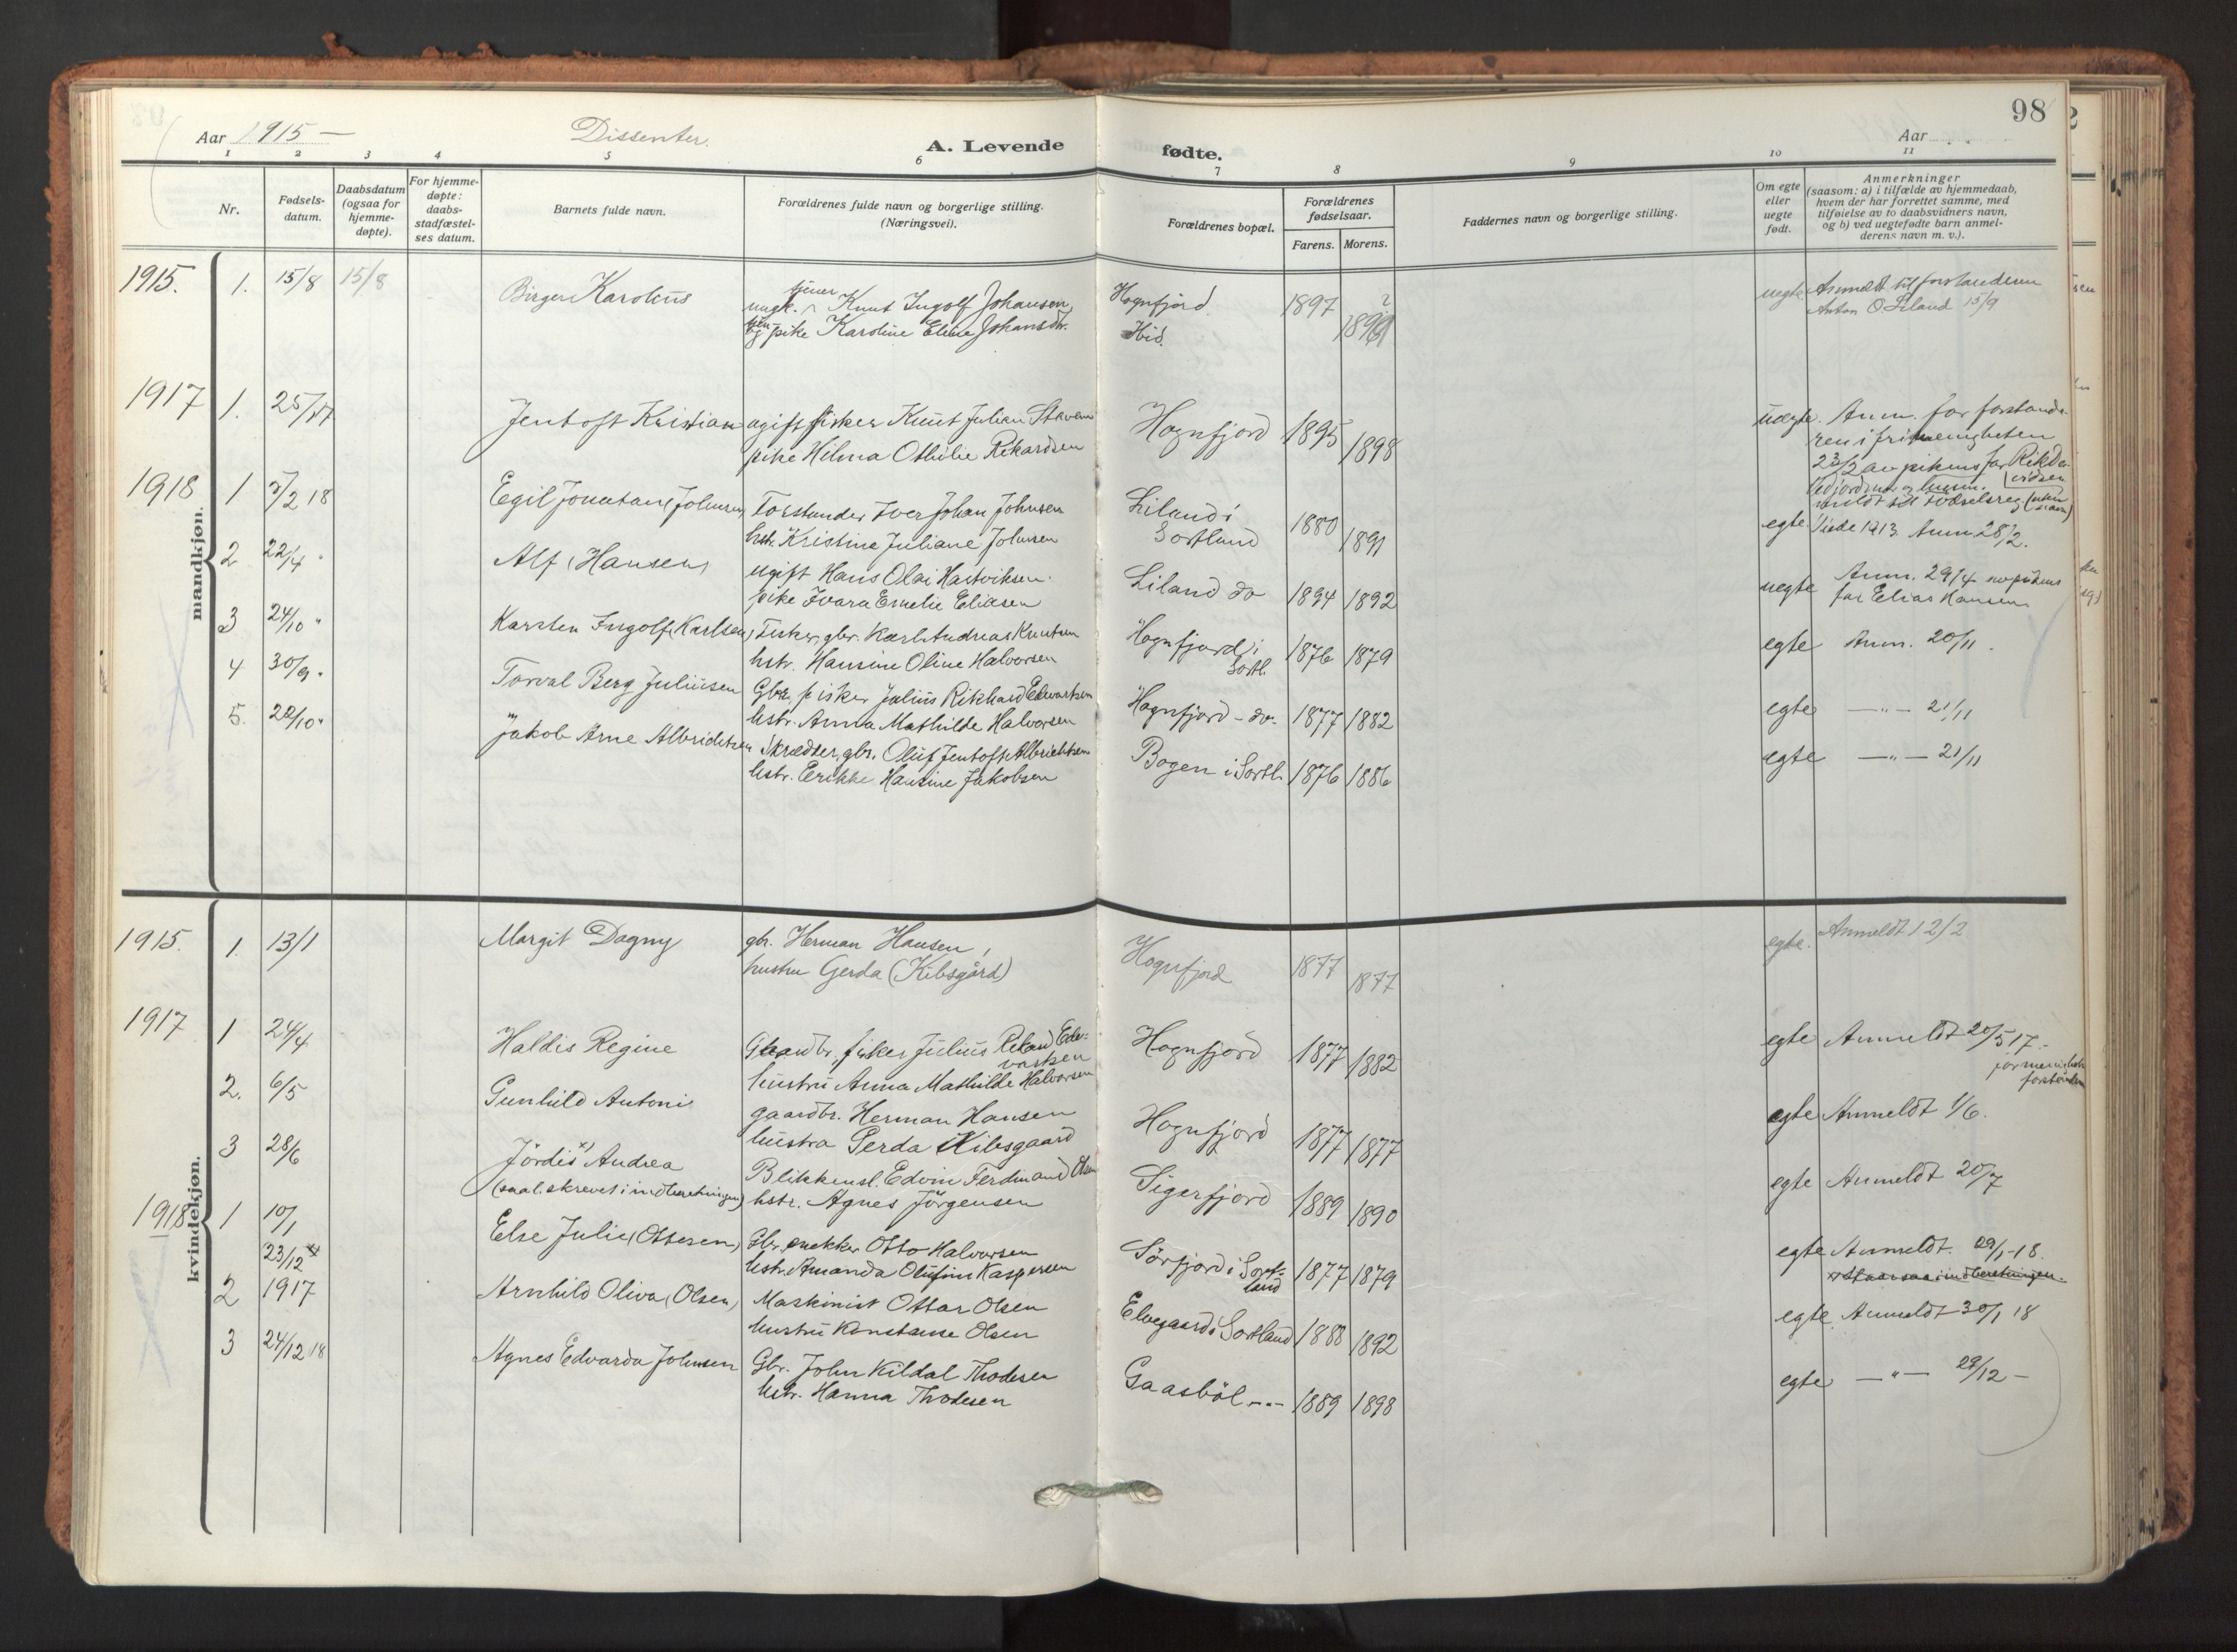 98
Aar 1915 —
Dissenter.
A. Levende
fødte.
Aar
1 2 3 4 5 6 7 8 9 10 11
Nr.
Fødsels-
datum.
Daabsdatum
(ogsaa for
hjemme-
døpte).
For hjemme-
døpte:
daabs-
stadfæstel-
ses datum.
Barnets fulde navn.
Forældrenes fulde navn og borgerlige stilling.
(Næringsvei).
Forældrenes bopæl.
Forældrenes
fødselsaar.
Farens. Morens.
Faddernes navn og borgerlige stilling.
Om egte
eller
uegte
født.
Anmerkninger
(saasom: a) i tilfælde av hjemmedaab,
hvem der har forrettet samme, med
tilføielse av to daabsvidners navn,
og b) ved uegtefødte barn anmel-
derens navn m. v.).
mandkjøn.
1915. 1. 15/8 15/8 Birger Karolus
tjener
ungk. Knut Ingolf Johansen,
pike Karoline Eline Johansdtr.
Hognfjord
Ibid.
1897
uegte Anmeldt til forstanderen
Anton O. Liland 15/9
1917 1. 25/1 17 Jentoft Kristian ugift fisker Knut Julian
pike Hilma Othilie Rikardsen
Hognfjord 1895 1898
uegte. Anm. for forstande-
ren i frimenigheten
23/2 av pikens far
1918 1 7/2 18 Egil Jonatan (Johnsen) Forstander Iver Johan Johnsen
hstr. Kristine Juliane Johnsen
Liland i
Sortland
1880 1891
egte. Viede 1913. Anm. 28/2.
2 22/4 " Alf (Hansen) ugift Hans Olai Hartviksen.
pike Ivara Emelie Eliasen
Liland do 1894 1892
uegte Anm. 29/4 av pikens
far Elias Hansen
3 24/10 " Karsten Ingolf (Karlsen) Fisker, gbr. Karl Andreas Knutsen
hstr. Hansine Oline Halvorsen
Hognfjord i
Sortl.
1876 1879
egte Anm. 20/11.
4 30/9 " Torval Berg Juliussen Gbr. fisker Julius Rikhard Edvartsen
hstr. Anna Mathilde Halvorsen
Hognfjord - do. 1877 1882
egte —"— 21/11
5. 22/10 " Jakob Arne Albrichtsen Skrædder, gbr. Oluf Jentoft Albrichtsen
hstr. Erikke Hansine Jakobsen
Bogen i Sortl. 1876 1886
egte —"— 21/11
kvindekjøn.
1915. 1. 13/1 Margit Dagny gbr. Herman Hansen,
hustru Gerda (Kibsgård)
Hognfjord 1877 1877
egte. Anmeldt 12/2
1917 1 24/4 Haldis Regine Gaardbr. fisker Julius Rikard Ede-
vartsen
hustru Anna Mathilde Halvorsen
Hognfjord 1877 1882
egte Anmeldt 20/5 17.
2. 6/5 Gunhild Antoni gaardbr. Herman Hansen
hustru Gerda Kibsgaard
Hognfjord 1877 1877
egte Anmeldt 1/6.
3 28/6 Jördis x) Andrea
(saal. skrevet i indberetningen)
Blikkensl. Edvin Ferdinand Olsen
hstr. Agnes Jörgensen
Sigerfjord 1889 1890
egte Anmeldt 20/7
1918 1 10/1 Else Julie (Ottesen) Gbr. snekker Otto Halvorsen
hstr. Amanda Olufine Kaspersen
Sörfjord i Sort-
land
1877 1879
egte Anmeldt. 29/1-18.
x) Staar saa i indberetningen.
2 23/12 x)
1917
Arnhild Oliva (Olsen) Maskinist Ottar Olsen
hustru Konstanse Olsen
Elvegaard i Sortland 1888 1892
egte Anmeldt 30/1 18
3 24/12 18 Agnes Edvarda Johnsen Gbr. John Kildal Thodesen
hstr. Hanna Thodesen
Gaasböl —"— 1889 1898
egte —"— 29/12 —